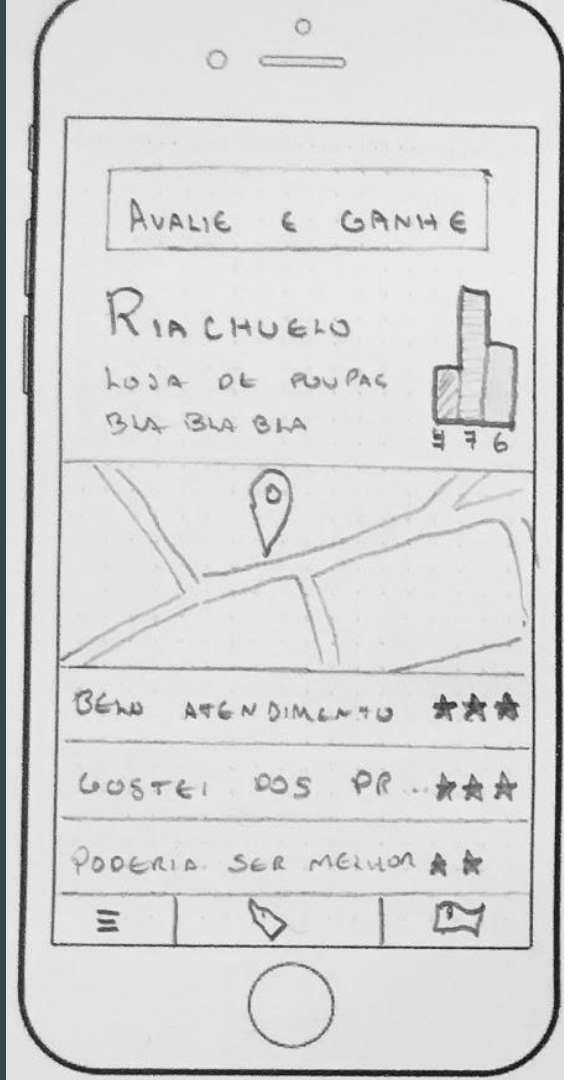 AVALIE E GANHE
RIACHUELO
LOJA DE ROUPAS
BLA BLA BLA
7 6
BELO ATENDIMENTO
GOSTEI DOS PR...
PODERIA SER MELHOR